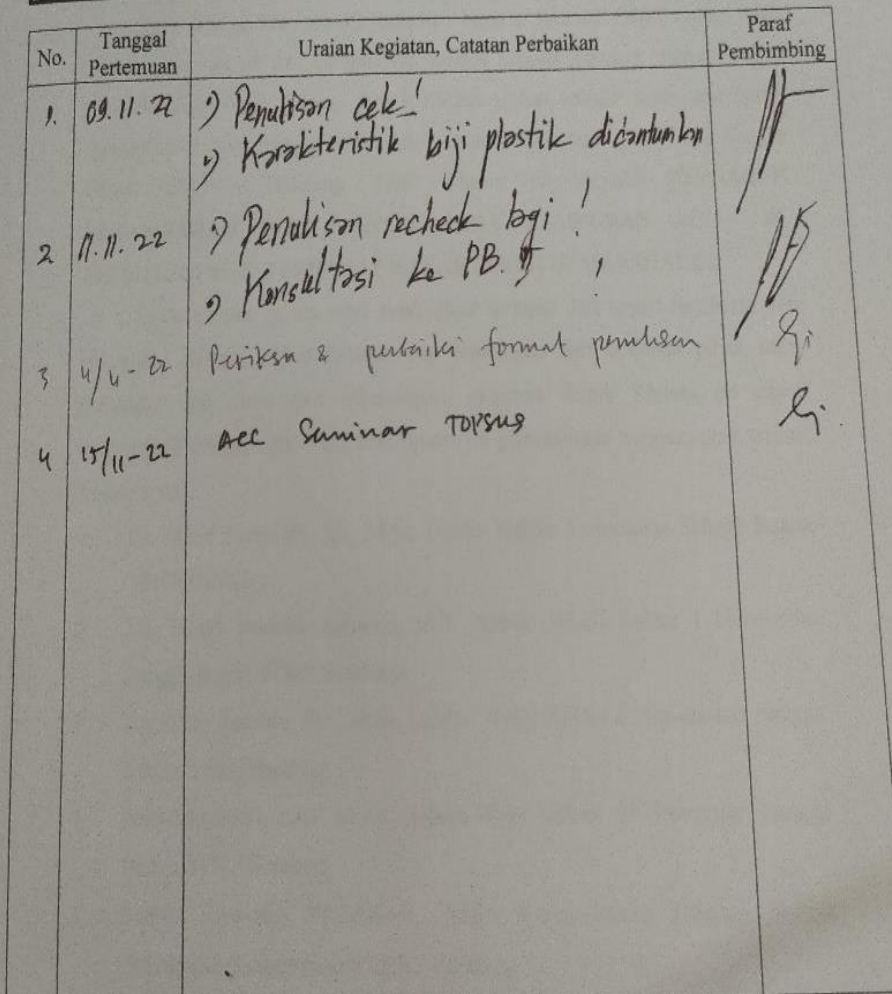 No. Tanggal Pertemuan Uraian Kegiatan, Catatan Perbaikan Paraf Pembimbing
1. 09.11.22 Penulisan cek!
Karakteristik biji plastik dicantumkan
2 11.11.22 Penulisan recheck lagi!
Konsultasi ke PB. !
3 4/4-22 Periksa & perbaiki format penulisan
4 15/11-22 Acc Seminar TOPSUS